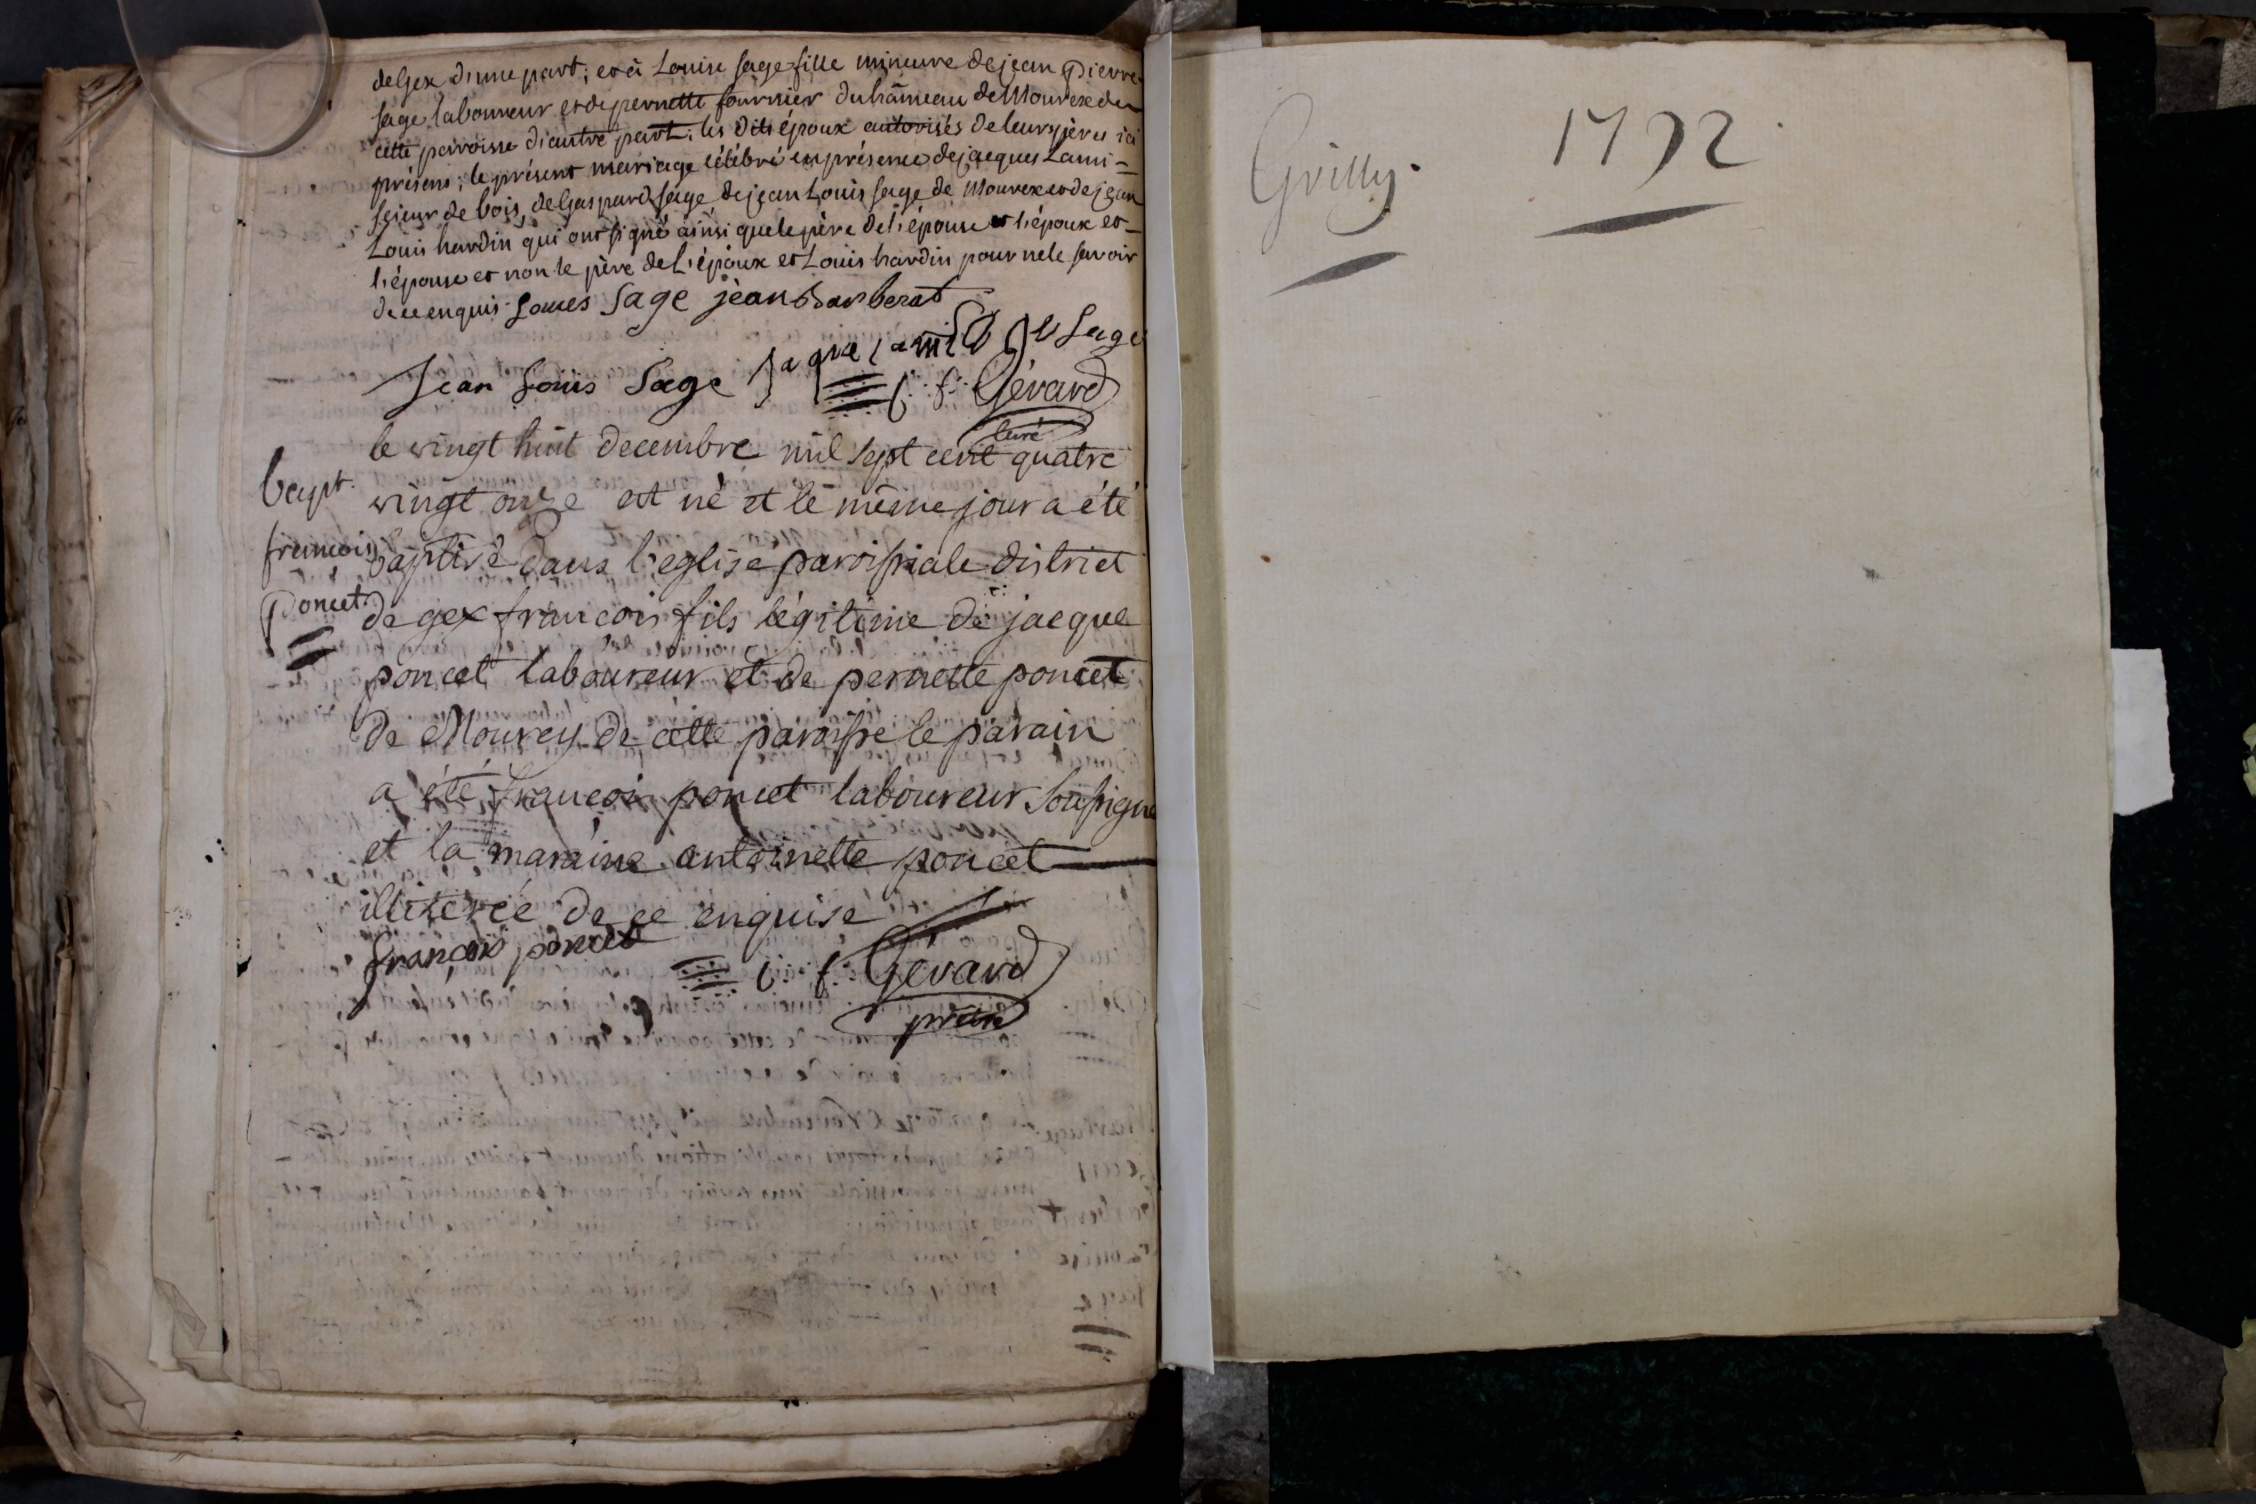 de Gex d'une part; et à Louise sage fille mineure de jean pierre
sage laboureur et de pernette fournier du hâmeau de Mourex de
cette paroisse d'autre part; les dits époux autorisés de leurs pères ici
présens; le présent mariage célébré en présence de jacques Lami
scieur de bois, de Gaspard sage, de jean Louis sage de Mourex et de jean
Louis hardin qui ont signé ainsi que le père de l'épouse et l'époux et
l'épouse et non le père de l'époux et Louis hardin pour ne le savoir
de ce enquis. Loues Sage jèan barberat
jaque lami sage
Jean Louis Sage
C: f: Gérard
curé
le vingt huit decembre mil sept cent quatre
bapt. vingt onze est né et le même jour a été
francois baptisé dans l'eglise paroissiale district
poncet de gex francois fils légitime de jacque
poncet laboureur et de pernette poncet
de Mourey de cette paroisse le parain
a été francois poncet laboureur soussigné
et la maraine antoinette poncet
illiterée de ce enquise
françois poncet
C: f: Gérard
prètre
Grilly.
1792